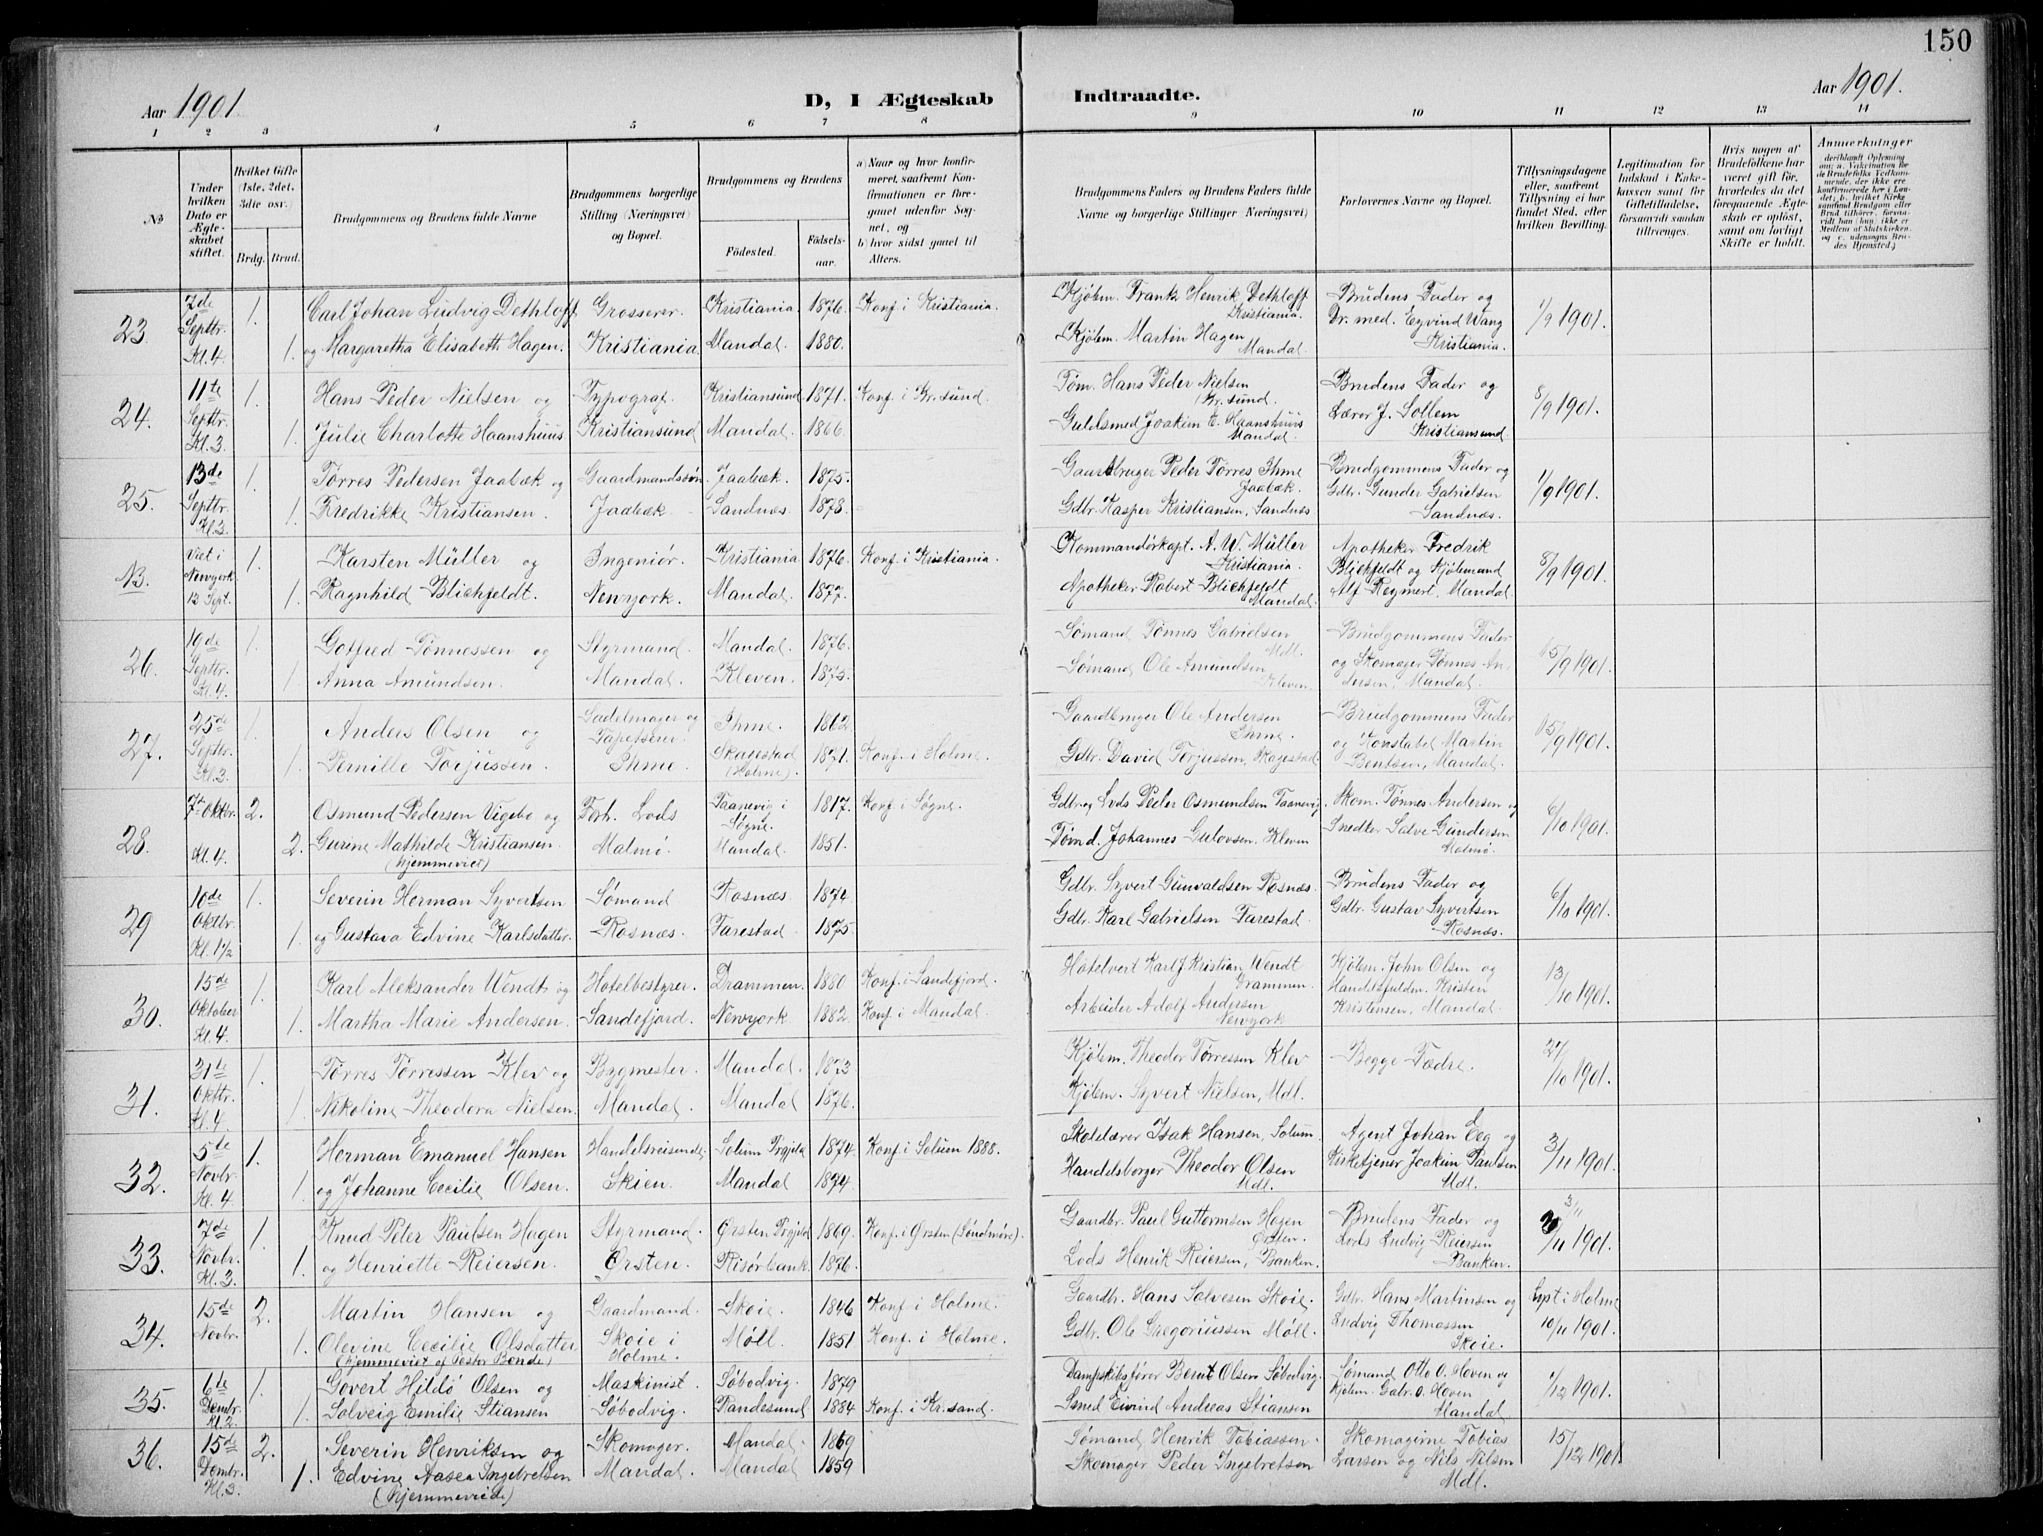 150
Aar 1901.
D, I Ægteskab Indtraadte.
Aar 1901.
1 2 3 4 5 6 7 8 9 10 11 12 13 14
No
Under hvilken Dato er Ægteskabet stiftet.
Hvilket Gifte (1ste, 2det, 3die osv.)
Brdg. Brud.
Brudgommens og Brudens fulde Navne
Brudgommens borgerlige Stilling (Næringsvei) og Bopæl.
Brudgommens og Brudens
Födested. Födsels-aar.
a) Naar og hvor konfirmeret, saafremt Konfirmationen er foregaaet udenfor Sognet, og
b) hvor sidst gaaet til Alters.
Brudgommens Faders og Brudens Faders fulde Navne og borgerlige Stillinger (Næringsvei)
Forlovernes Navne og Bopæl.
Tillysningsdagene eller, saafremt Tillysning ei har fundet Sted, efter hvilken Bevilling.
Legitimation for Indskud i Enkekassen samt for Giftetilladelse, forsaavidt saadan tiltrænges.
Hvis nogen af Brudefolkene har været gift för, hvorledes da det foregaaende Ægteskab er oplöst, samt om lovligt Skifte er holdt.
Anmærkninger
23. 7de Septbr. Kl. 4 1. 1.
Carl Johan Ludvig Dethloff Grosserer. Kristiania. 1876. Konf. i Kristiania.
og Margaretha Elisabeth Hagen. Kristiania. Mandal. 1880.
Kjøbm. Frantz Henrik Dethloff Kristiania.
Kjøbm. Martin Hagen Mandal.
Brudens Fader og Dr. med. Eyvind Wang Kristiania.
1/9 1901.
24. 11te Septbr. Kl. 3 1. 1.
Hans Peder Nielsen og Typograf. Kristiansund 1871. Konf. i Kr. sund.
Julie Charlotte Haanshuus Kristiansund Mandal. 1866
Tøm. Hans Peder Nielsen Kr. sund.
Guldsmed Joakim E. Haanshuus Mandal.
Brudens Fader og Lærer J. Sollem Kristiansund.
8/9 1901.
25. 13de Septbr. Kl. 3. 1. 1.
Tørres Pedersen Jaabæk og Gaardmandssøn. Jaabæk. 1875.
Fredrikke Kristiansen. Jaabæk Sandnæs 1878.
Gaardbruger Peder Tørres Ihme Jaabæk.
Gdbr. Kasper Kristiansen, Sandnæs
Brudgommens Fader og Gdbr. Gunder Gabrielsen Sandnæs.
1/9 1901.
N3. Viet i Newyork 12 Sept. 1. 1.
Karsten Müller og Ingeniør. Kristiania 1876. Konf. i Kristiania.
Ragnhild Blichfeldt. Newyork. Mandal. 1877.
Kommandørkapt. A. W. Müller Kristiania.
Apotheker Robert Blichfeldt Mandal.
Apotheker Fredrik Blichfeldt og Kjøbmand Alf Regmert, Mandal.
8/9 1901.
26. 19de Septbr. Kl. 4. 1. 1.
Gotfred Tønnessen og Styrmand. Mandal. 1876.
Anna Amundsen. Mandal. Kleven. 1875.
Sømand Tønnes Gabrielsen Mdl.
Sømand Ole Amundsen Kleven.
Brudgommens Fader og Skomager Tønnes Andersen, Mandal.
15/9 1901.
27. 25de Septbr. Kl. 3. 1. 1.
Anders Olsen og Sadelmager og Tapetserer. Ihme. 1862
Pernille Torjussen. Ihme. Skagestad (Holme). 1871. Konf. i Holme.
Gaardbruger Ole Andersen Ihme.
Gdbr. David Torjussen, Skagestad.
Brudgommens Fader og Konstabel Martin Bentsen, Mandal.
15/9 1901.
28. 7de Oktbr. Kl. 4. 2. 2.
Osmund Pedersen Vigebo og Forh. Lods Taanevig i Søgne. 1817. Konf. i Søgne.
Gurine Mathilde Kristiansen. Malmø. Mandal. 1851.
(hjemmeviet)
Gdbr. og Lods Peder Osmundsen Taanevig.
Tømd. Johannes Gulovsen. Kleven
Skom. Tønnes Andersen og Snedker Salve Gundersen Malmø.
6/10 1901.
29 10de Oktbr. Kl. 1½ 1. 1.
Severin Herman Syvertsen Sømand Rosnæs 1874
og Gustava Edvine Karlsdatter. Rosnæs. Farestad 1875.
Gdbr. Syvert Gunvaldsen Rosnæs.
Gdbr. Karl Gabrielsen Farestad
Brudens Fader og Gdbr. Gustav Syvertsen Rosnæs.
6/10 1901.
30. 15de Oktober Kl. 4. 1. 1.
Karl Aleksander Wendt og Hotelbestyrer. Drammen. 1880 Konf. i Sandefjord.
Martha Marie Andersen. Sandefjord. Newyork 1882. Konf. i Mandal.
Hotelvert Karl J. Kristian Wendt Drammen.
Arbeider Adolf Andersen Newyork
Kjøbm. John Olsen og Handelsfuldm. Kristen Kristensen, Mandal.
13/10 1901.
31. 31te Oktbr. Kl. 4 1. 1.
Tørres Tørressen Klev og Bygmester. Mandal. 1873.
Nikoline Theodora Nielsen. Mandal. Mandal 1876.
Kjøbm. Theodor Tørressen Klev
Kjøbm. Syvert Nielsen, Mdl.
Begge Fædre.
27/10 1901.
32. 5te Novbr. Kl. 4 1. 1.
Herman Emanuel Hansen Handelsreisende Solum Prgjld. 1874. Konf. i Solum 1888.
og Johanne Cecilie Olsen. Skien. Mandal 1874.
Skolelærer Isak Hansen, Solum.
Handelsborger Theodor Olsen Mdl.
Agent Johan Eeg og Kirketjener Joakim Paulsen Mdl.
3/11 1901.
33. 7de Novbr. Kl. 3. 1. 1.
Knud Peter Paulsen Hagen Styrmand. Ørsten Prgjld 1869. Konf. i Ørsten (Søndmøre).
og Henriette Reiersen. Ørsten. Risørbank. 1876.
Gaardbr. Paul Guttormsen Hagen Ørsten.
Lods Henrik Reiersen, Banken.
Brudens Fader og Lods Ludvig Reiersen Banken.
3/11
3/11 1901.
34. 15de Novbr. 2. 1.
Martin Hansen og Gaardmand. Skoie. 1846 Konf. i Holme.
Olevine Cecilie Olsdatter Skoie i Holme. Møll. 1851 Konf. i Holme.
(hjemmeviet af Pastor Bonde)
Gaardbr. Hans Salvesen Skoie.
Gdbr. Ole Gregoriussen Møll.
Gdbr Hans Martinsen og Ludvig Thomassen Skoie.
Lyst i Holme 10/11 1901.
35. 6te Dcmbr. Kl. 2 1. 1.
Govert Hildø Olsen og Maskinist. Søbodvig. 1879
Solveig Emilie Stiansen Søbodvig. Randesund 1884 Konf. i Kr. sand.
Dampskibsfører Bernt Olsen Søbodvig.
Smed Eivind Andreas Stiansen
Sømand Otto O. Hoven og Kjøbm. Gabr. O. Hoven Mandal.
1/12 1901.
36. 15de Dcmbr. Kl. 3. 2. 1.
Severin Henriksen og Skomager. Mandal. 1869
Edvine Aasea Ingebretsen Mandal. Mandal 1859
(hjemmeviede)
Sømand Henrik Tobiassen.
Skomager Peder Ingebretsen
Skomagerne Tobias Larsen og Nils Nilsen Mdl.
15/12 1901.